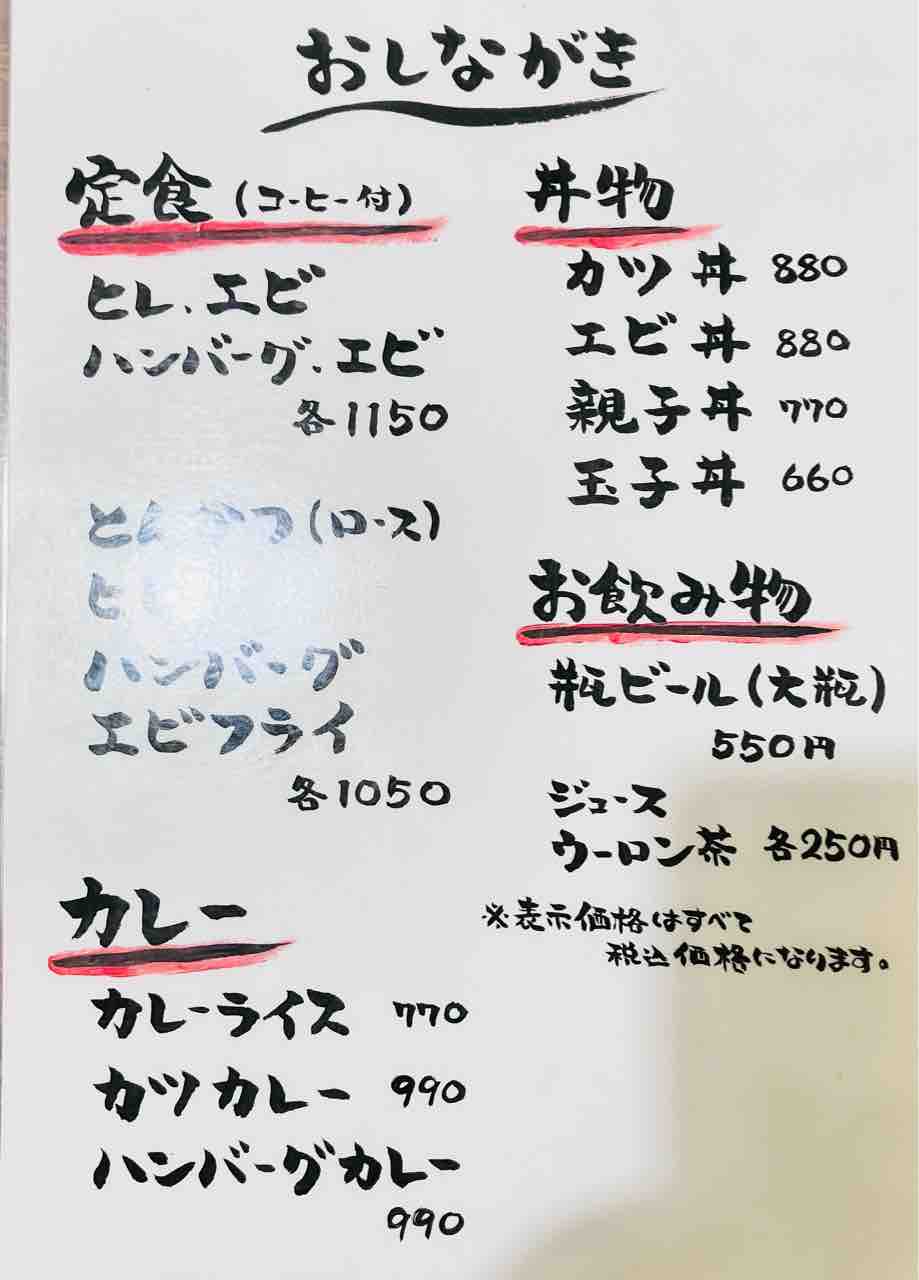 おしながき
定食(コーヒー付)
ヒレ、エビ
ハンバーグ、エビ
各1150
とんかつ(ロース)
ヒ
ハンバーグ
エビフライ
各1050
カレー
カレーライス 770
カツカレー 990
ハンバーグカレー
990
丼物
カツ丼 880
エビ丼 880
親子丼 770
玉子丼 660
お飲み物
瓶ビール(大瓶)
550円
ジュース
ウーロン茶 各250円
※表示価格はすべて
税込価格になります。